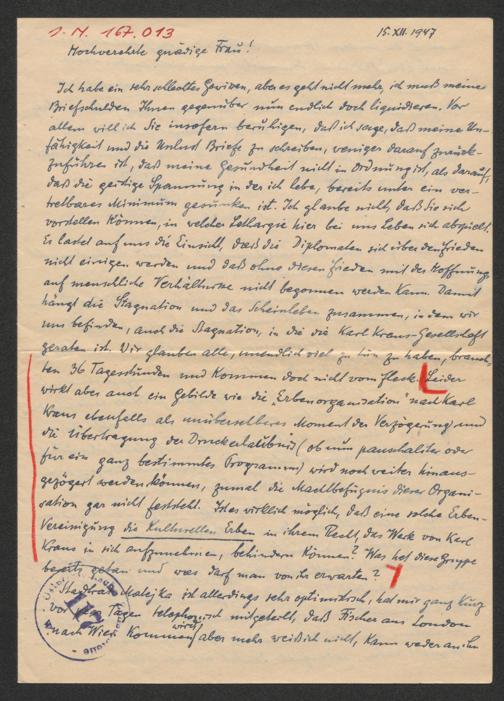 I. N. 167.013
15. XII. 1947
Hochverehrte gnädige Frau!
Ich habe ein sehr schlechtes Gewissen, aber es geht nicht mehr, ich muß meine
Briefschulden Ihnen gegenüber nun endlich doch liquidieren. Vor
allem will ich Sie insofern beruhigen, daß ich sage, daß meine Un-
fähigkeit und die Unlust Briefe zu schreiben, weniger darauf zurück-
zuführen ist, daß meine Gesundheit nicht in Ordnung ist, als darauf,
daß die geistige Spannung in der ich lebe, bereits unter ein ver-
tretbares Minimum gesunken ist. Ich glaube nicht, daß Sie sich
vorstellen können, in welcher Lethargie hier bei uns Leben sich abspielt.
Es lastet auf uns die Einsicht, daß die Diplomaten sich über den Frieden
nicht einigen werden und daß ohne diesen Frieden mit der Hoffnung
auf menschliche Verhältnisse nicht begonnen werden kann. Damit
hängt die Stagnation und das Scheinleben zusammen, in dem wir
uns befinden, auch die Stagnation, in die die Karl Kraus-Gesellschaft
geraten ist. Wir glauben alle, unendlich viel zu tun zu haben, brauch-
ten 36 Tagesstunden und kommen doch nicht vom Fleck. Leider
wirkt aber auch ein Gebilde wie die „Erbenorganisation" nach Karl
Kraus ebenfalls als unübersehbares Moment der Verzögerung und
die Übertragung der Druckerlaubnis (ob nun pauschaliter oder
für ein ganz bestimmtes Programm) wird noch weiter hinaus-
gezögert werden können, zumal die Machtbefugnis dieser Organi-
sation gar nicht feststeht. Ist es wirklich möglich, daß eine solche Erben-
Vereinigung die kulturellen Erben in ihrem Recht, das Werk von Karl
Kraus in sich aufzunehmen, behindern können? Was hat diese Gruppe
bereits getan und was darf man von ihr erwarten?
Stadtrat Matejka ist allerdings sehr optimistisch, hat mir ganz kurz
vor Tagen telephonisch mitgeteilt, daß Fischer aus London
nach Wien kommen wird, aber mehr weiß ich nicht, kann weder an ihn